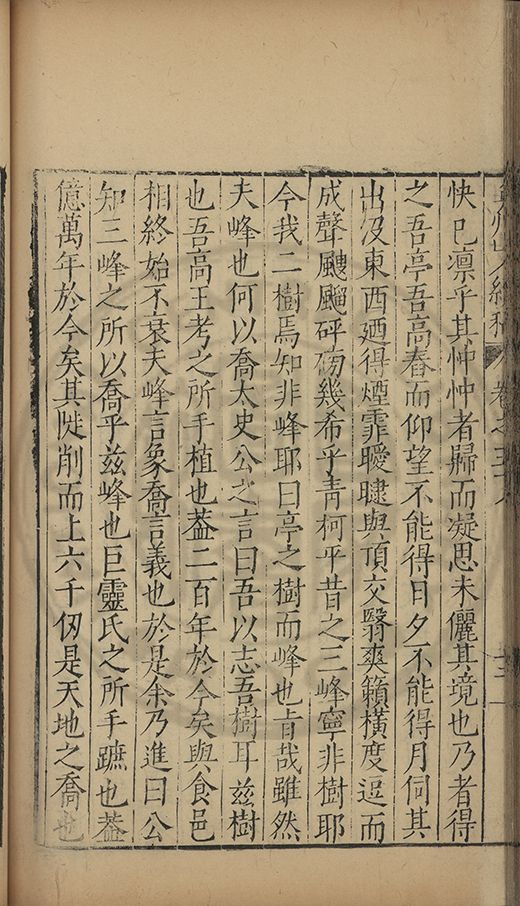 山人續稿 卷之
快已凛乎其忡忡者歸而凝思未儷其境也乃者得
之吾亭吾高舂而仰望不能得日夕不能得月伺其
出没東西廼得煙霏曖曃與頂交翳爽籟横度逗而
成聲颼飀砰磅幾希乎青柯平昔之三峰寧非樹耶
今我二樹焉知非峰耶曰亭之樹而峰也旨哉雖然
夫峰也何以喬太史公之言曰吾以志吾樹耳兹樹
也吾高王考之所手植也葢二百年於今矣與食邑
相終始不衰夫峰言象喬言義也於是余乃進曰公
知三峰之所以喬乎兹峰也巨靈氏之所手蹠也葢
億萬年於今矣其陡削而上六千仞是天地之喬也